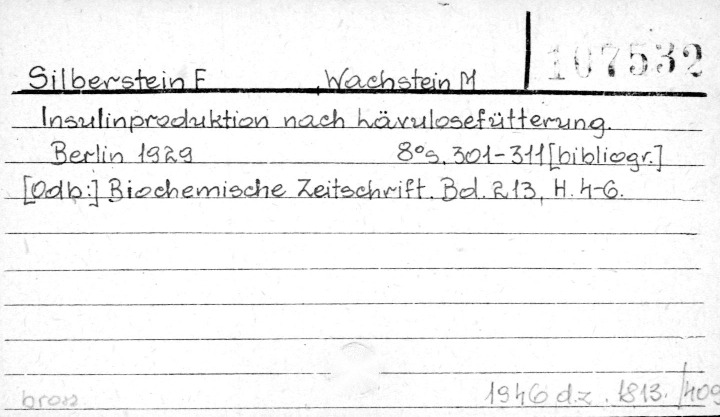 107532
Silberstein F Wachstein M
Insulinproduktion nach Lävulosefütterung.
Berlin 1929 8° s. 301-311 [bibliogr.]
[Odb:] Biochemische Zeitschrift. Bd. 213, H. 4-6.
brosz 1946 dz. 1813. /409